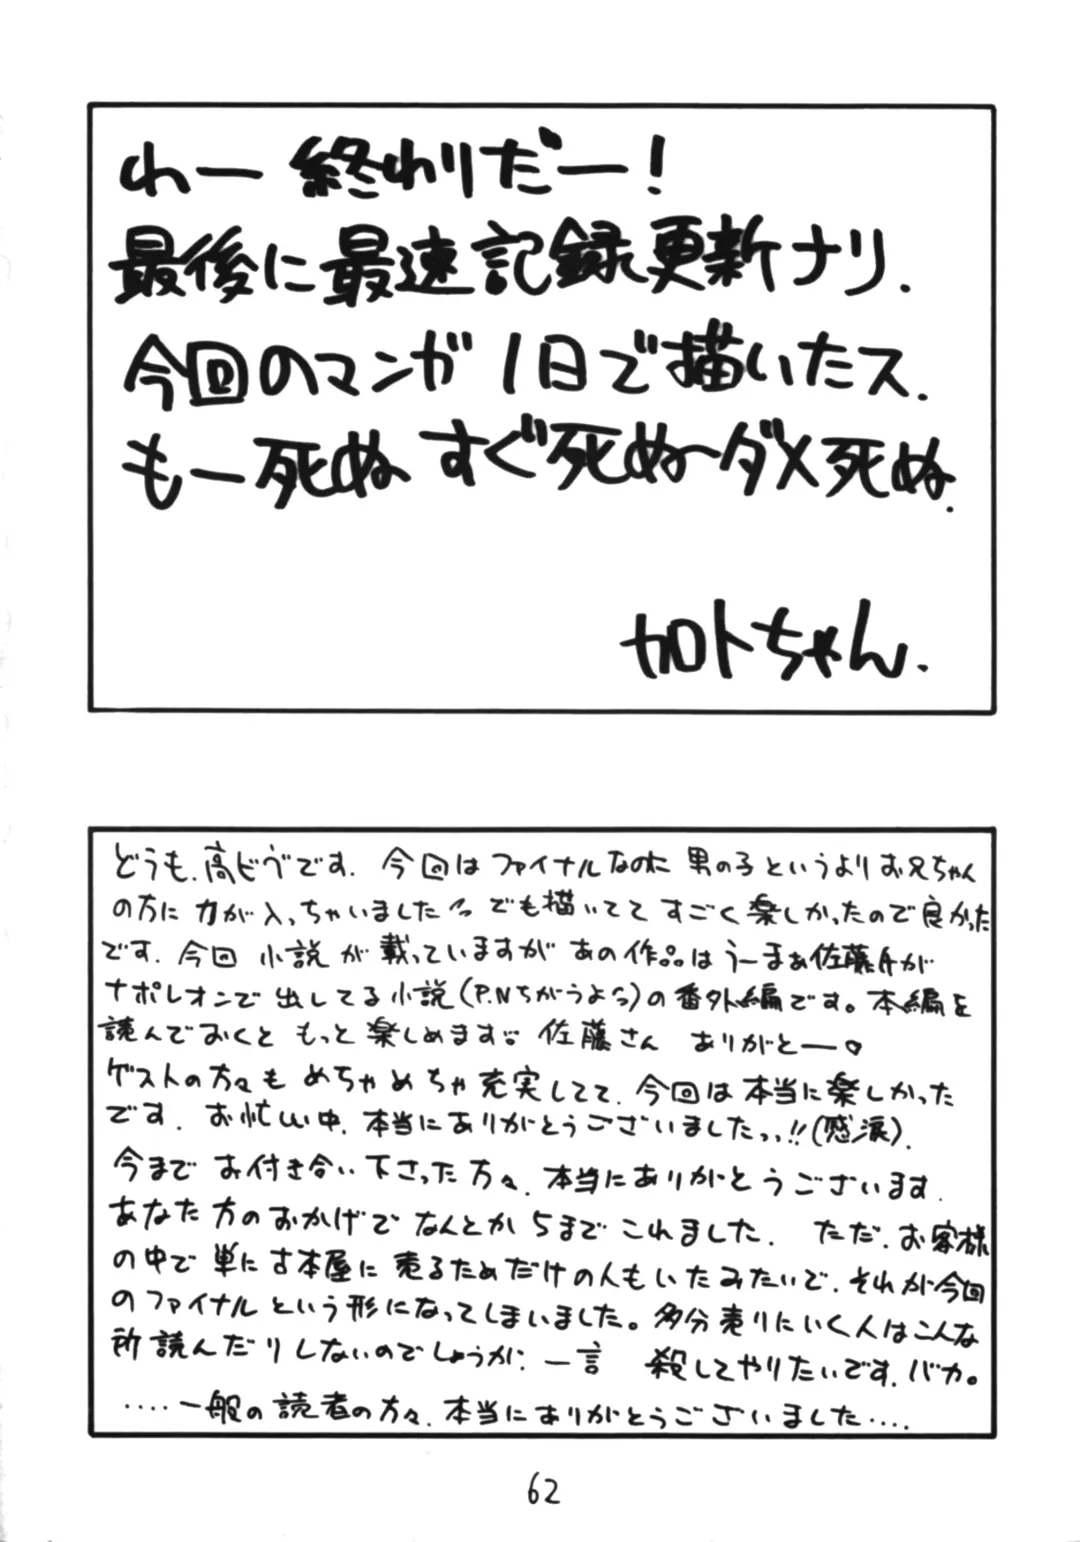 わー 終わりだー!
最後に最速記録更新ナリ.
今回のマンガ 1日で描いたス.
もー死ぬ すぐ死ぬ〜ダメ死ぬ.
カロトちゃん.
どうも、高ビヴです. 今回は ファイナルなのに 男の子というより お兄ちゃん
の方に 力が入っちゃいました でも描いてて すごく楽しかったので良かった
です. 今回 小説 が 載っていますが あの作品は うーまぁ佐藤氏が
ナポレオンで出してる小説(P.Nちがうよ)の番外編です。本編を
読んでおくと もっと楽しめます 佐藤さん ありがとー♡
ゲストの方々も めちゃめちゃ充実してて、今回は本当に楽しかった
です. お忙しい中、本当にありがとうございましたっ、!!(感涙).
今まで お付き合い下さった方々、本当にありがとうございます.
あなた方のおかげで なんとか 5まで これました. ただ、お客様
の中で 単に古本屋に 売るためだけの人もいたみたいで、それが今回
のファイナルという形になってしまいました。多分売りにいく人はこんな
所読んだりしないのでしょうが、 一言 殺してやりたいです、バカ。
‥‥一般の読者の方々、本当にありがとうございました‥‥.
62